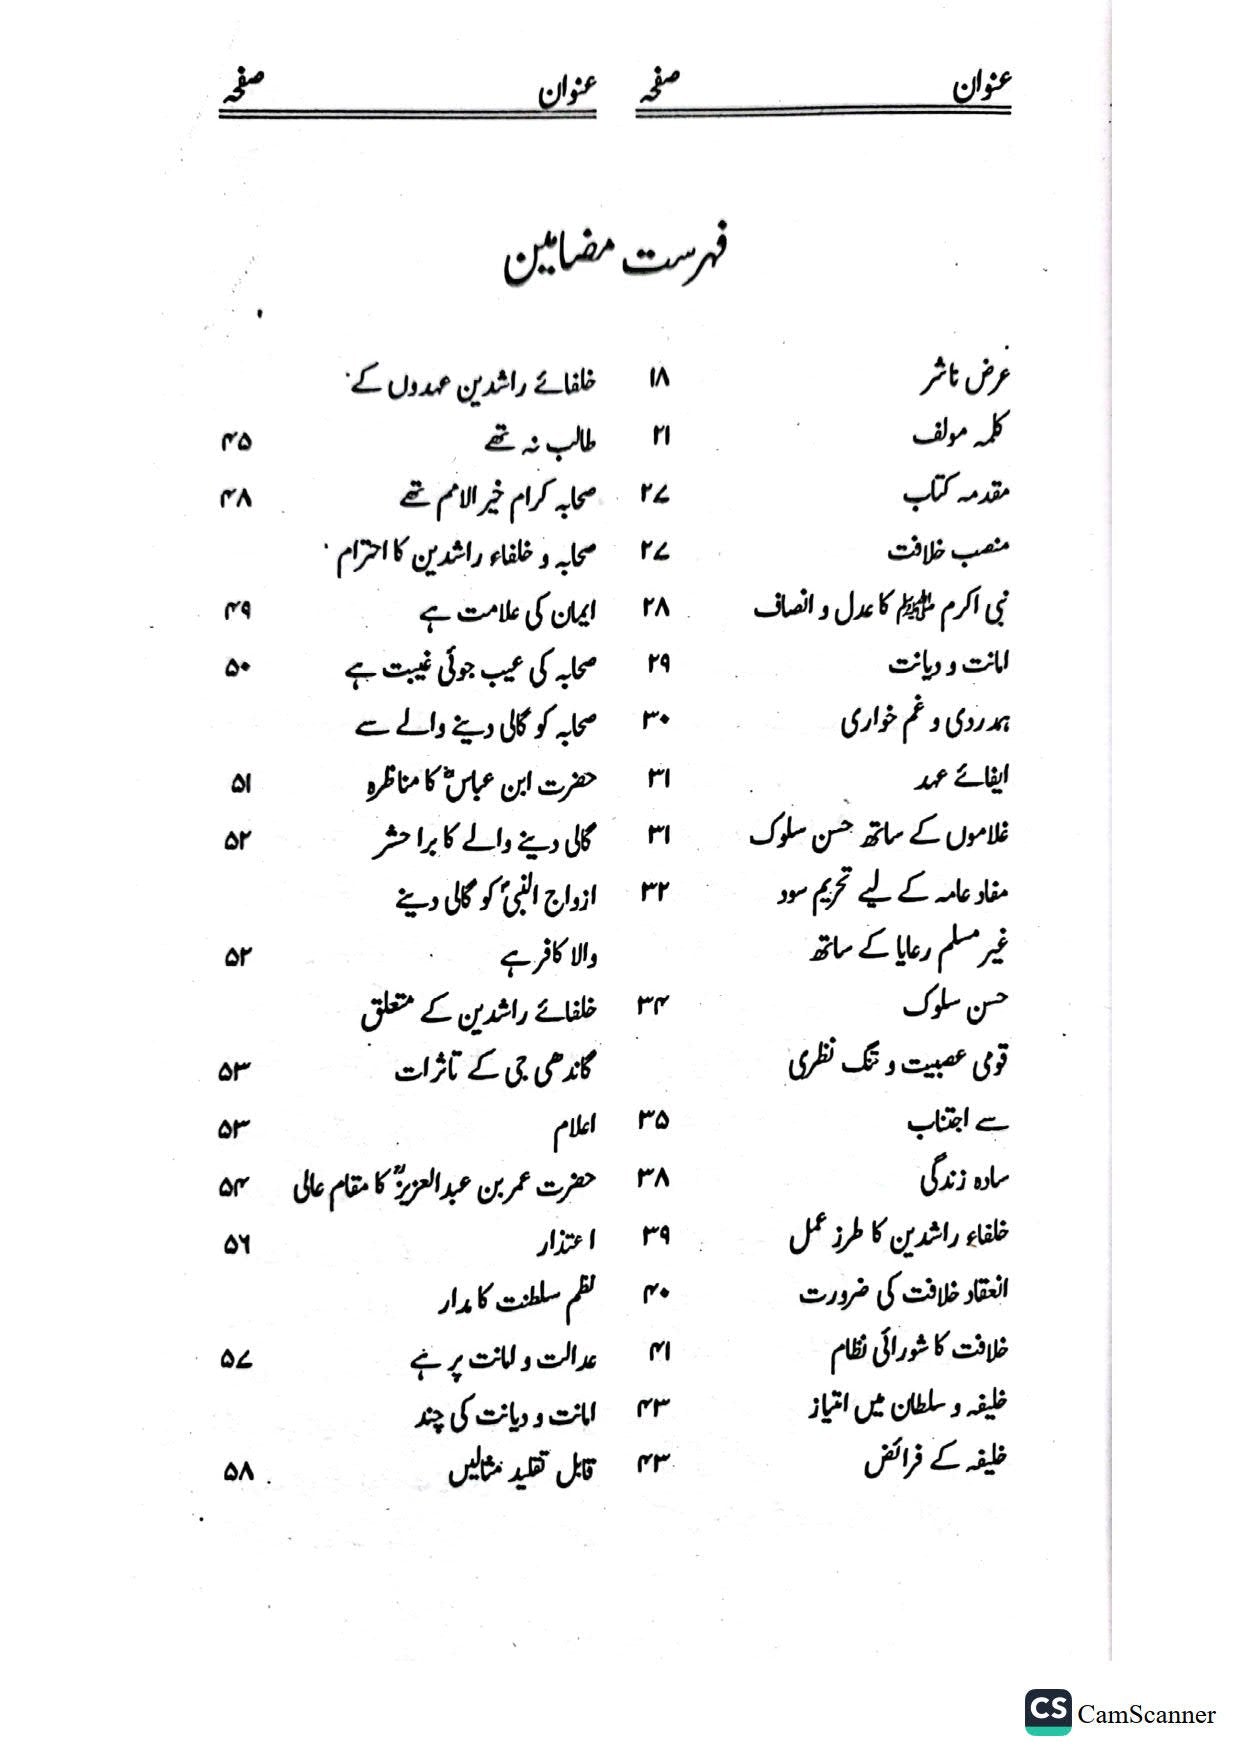 عنوان صفحہ
عنوان صفحہ
فہرست مضامین
عرض ناشر ۱۸
کلمہ مولف ۲۱
مقدمہ کتاب ۲۷
منصب خلافت ۲۷
نبی اکرم ﷺ کا عدل و انصاف ۲۸
امانت و دیانت ۲۹
ہمدردی و غم خواری ۳۰
ایفائے عہد ۳۱
غلاموں کے ساتھ حسن سلوک ۳۱
مفاد عامہ کے لیے تحریم سود ۳۲
غیر مسلم رعایا کے ساتھ
حسن سلوک ۳۴
قومی عصبیت و تنگ نظری
سے اجتناب ۳۵
سادہ زندگی ۳۸
خلفاء راشدین کا طرز عمل ۳۹
انعقاد خلافت کی ضرورت ۴۰
خلافت کا شورائی نظام ۴۱
خلیفہ و سلطان میں امتیاز ۴۳
خلیفہ کے فرائض ۴۳
خلفائے راشدین عہدوں کے
طالب نہ تھے ۴۵
صحابہ کرام خیر الامم تھے ۴۸
صحابہ و خلفاء راشدین کا احترام
ایمان کی علامت ہے ۴۹
صحابہ کی عیب جوئی غیبت ہے ۵۰
صحابہ کو گالی دینے والے سے
حضرت ابن عباسؓ کا مناظرہ ۵۱
گالی دینے والے کا برا حشر ۵۲
ازواج النبیؐ کو گالی دینے
والا کافر ہے ۵۲
خلفائے راشدین کے متعلق
گاندھی جی کے تاثرات ۵۳
اعلام ۵۳
حضرت عمر بن عبدالعزیزؒ کا مقام عالی ۵۴
اعتذار ۵۶
نظم سلطنت کا مدار
عدالت و امانت پر ہے ۵۷
امانت و دیانت کی چند
قابل تقلید مثالیں ۵۸
CS CamScanner